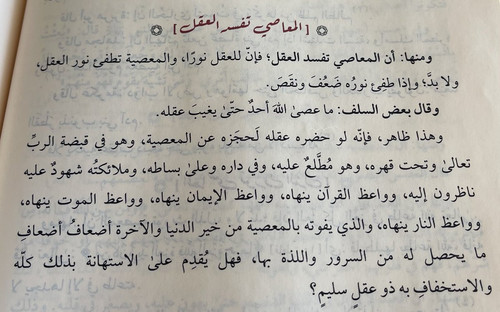 [ المعاصي تفسد العقل ]
ومنها: أن المعاصي تفسد العقل؛ فإنّ للعقل نورًا، والمعصية تطفئ نور العقل،
ولا بدَّ؛ وإذا طفِئ نورُه ضَعُفَ ونقَصَ.
وقال بعض السلف: ما عصىٰ اللهَ أحدٌ حتىٰ يغيبَ عقله.
وهذا ظاهر، فإنّه لو حضره عقله لَحجَزه عن المعصية، وهو في قبضة الربِّ
تعالىٰ وتحت قهره، وهو مُطَّلعٌ عليه، وفي داره وعلىٰ بساطه، وملائكتُه شهودٌ عليه
ناظرون إليه، وواعظ القرآن ينهاه، وواعظ الإيمان ينهاه، وواعظ الموت ينهاه،
وواعظ النار ينهاه، والذي يفوته بالمعصية من خير الدنيا والآخرة أضعافُ أضعافِ
ما يحصل له من السرور واللذة بها، فهل يُقدِم علىٰ الاستهانة بذلك كلّه
والاستخفافِ به ذو عقلٍ سليمٍ؟